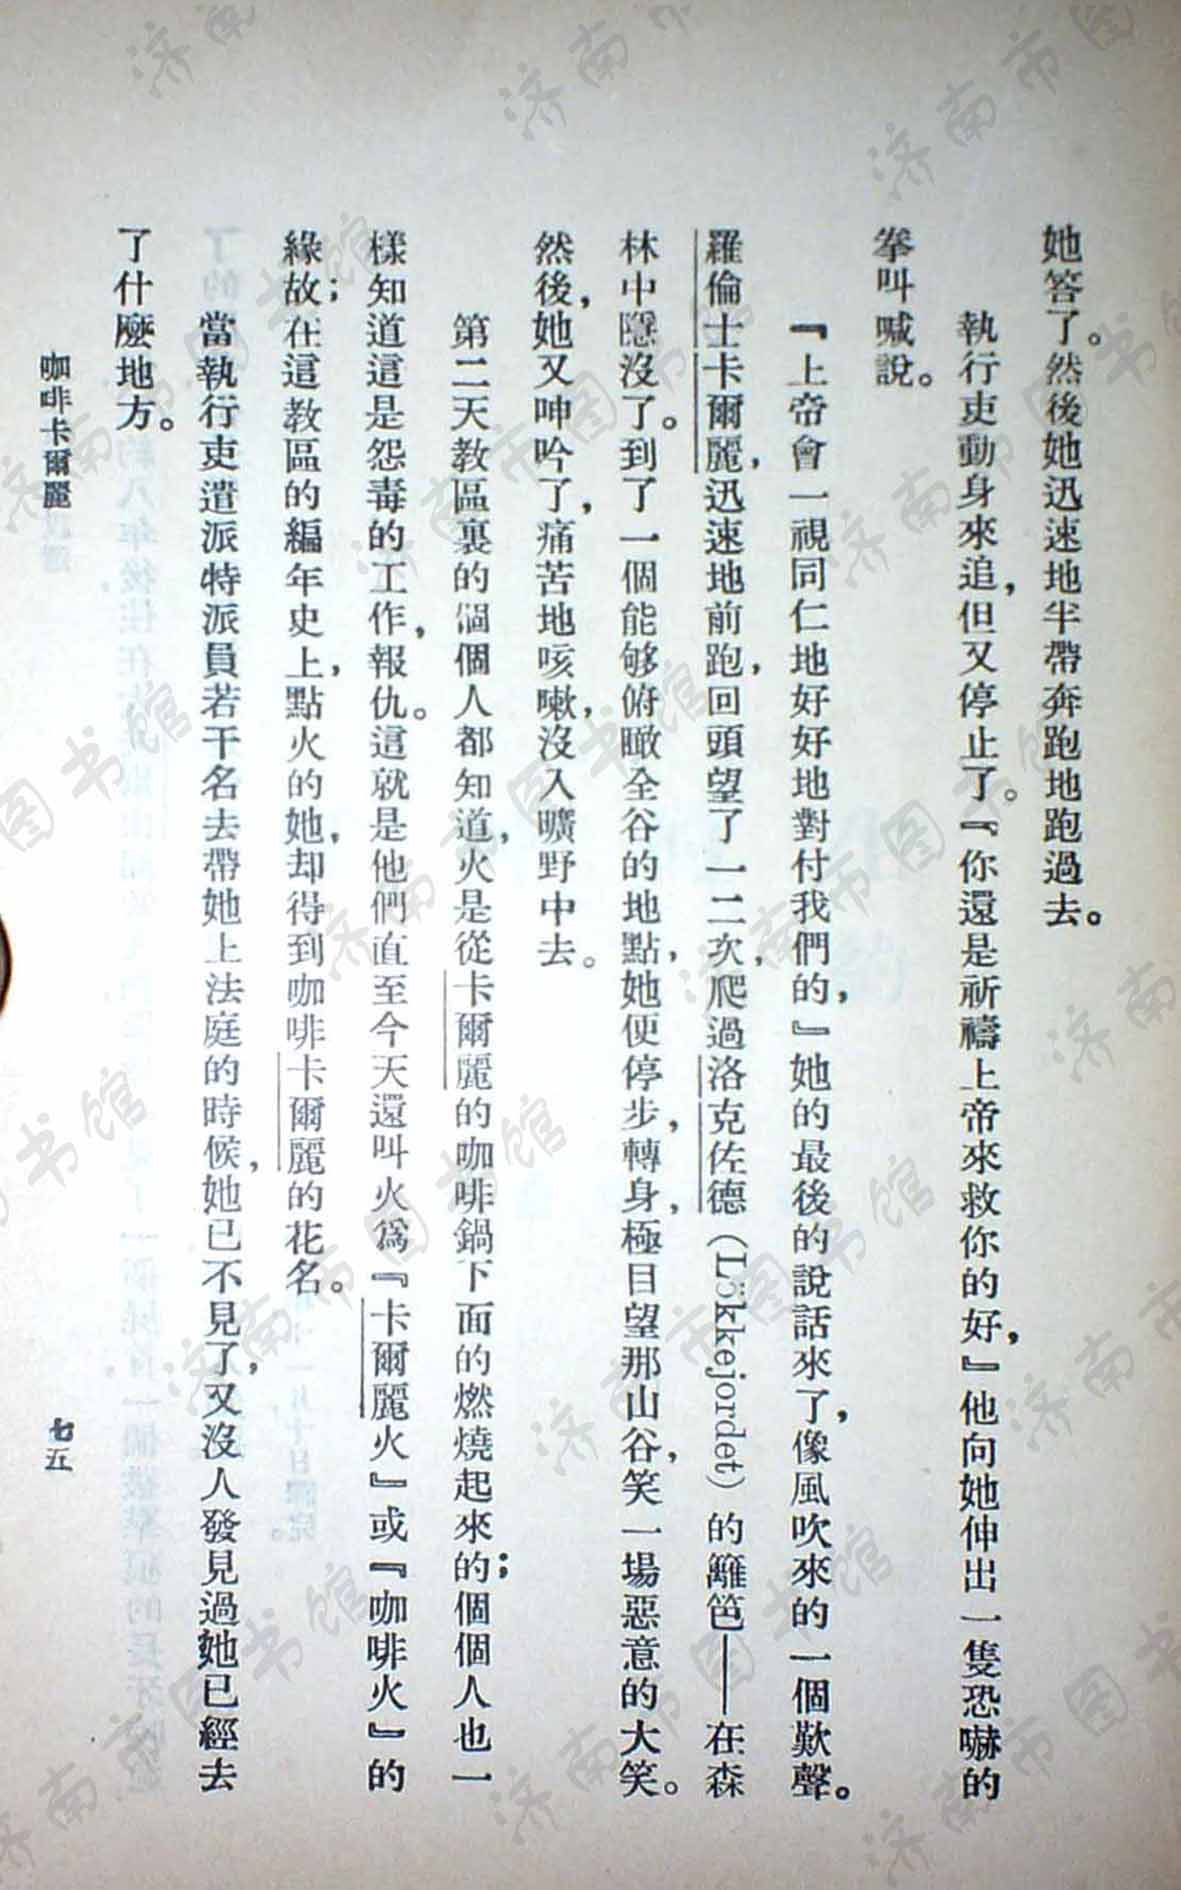 她答了。然後她迅速地半帶奔跑地跑過去。
執行吏動身來追，但又停止了。『你還是祈禱上帝來救你的好，』他向她伸出一隻恐嚇的
拳叫喊說。
『上帝會一視同仁地好好地對付我們的，』她的最後的說話來了，像風吹來的一個歎聲。
羅倫士卡爾麗，迅速地前跑，回頭望了一二次，爬過洛克佐德（Lökkejordet）的籬笆——在森
林中隱沒了。到了一個能够俯瞰全谷的地點，她便停步，轉身，極目望那山谷，笑一場惡意的大笑。
然後，她又呻吟了，痛苦地咳嗽，沒入曠野中去。
第二天教區裏的個個人都知道，火是從卡爾麗的咖啡鍋下面的燃燒起來的；個個人也一
樣知道這是怨毒的工作，報仇。這就是他們直至今天還叫火爲『卡爾麗火』或『咖啡火』的
緣故；在這教區的編年史上，點火的她，却得到咖啡卡爾麗的花名。
當執行吏遣派特派員若干名去帶她上法庭的時候，她已不見了，又沒人發見過她已經去
了什麼地方。
咖啡卡爾麗
七五
济南市图书馆